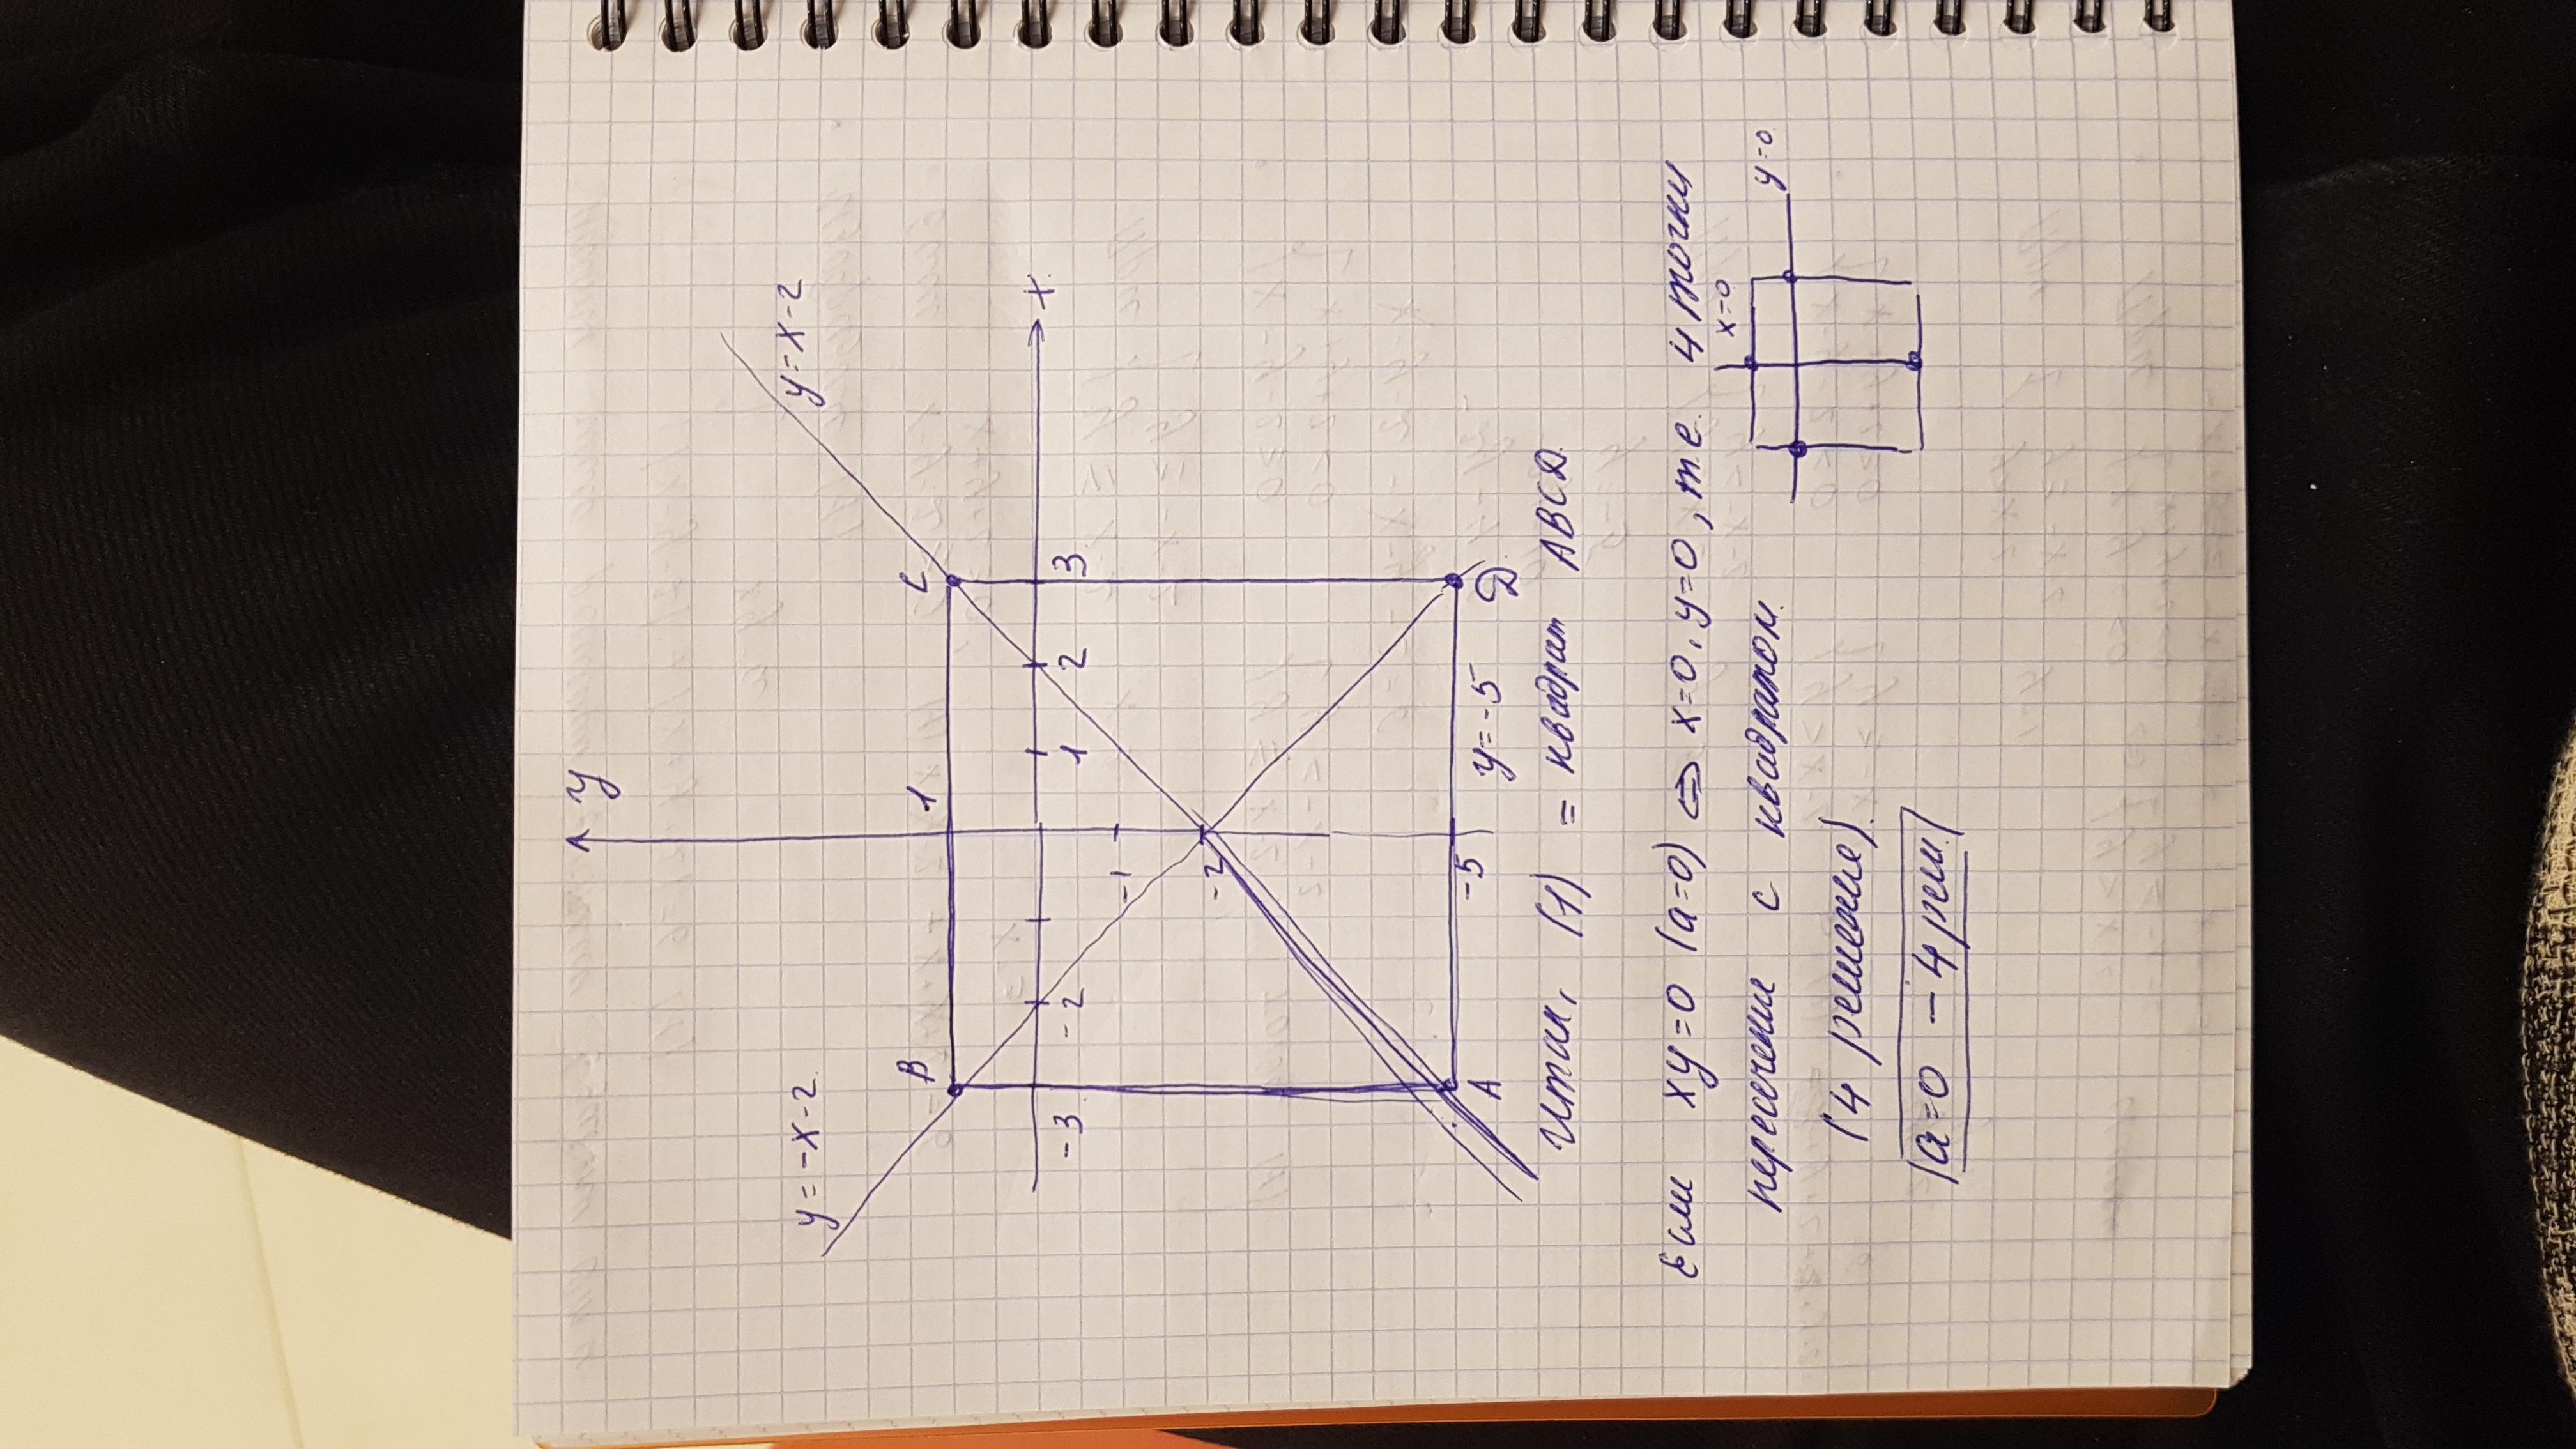 y
y=-x-2
y=x-2
B
1
C
x
-3
-2
1
2
3
-1
-2
-5
y=-5
A
D
Итак, (1) = квадрат ABCD.
Если xy=0 (a=0) ⇔ x=0, y=0, т.е. 4 точки
пересечения с квадратом.
x=0
y=0
(4 решения)
a=0 - 4 реш.